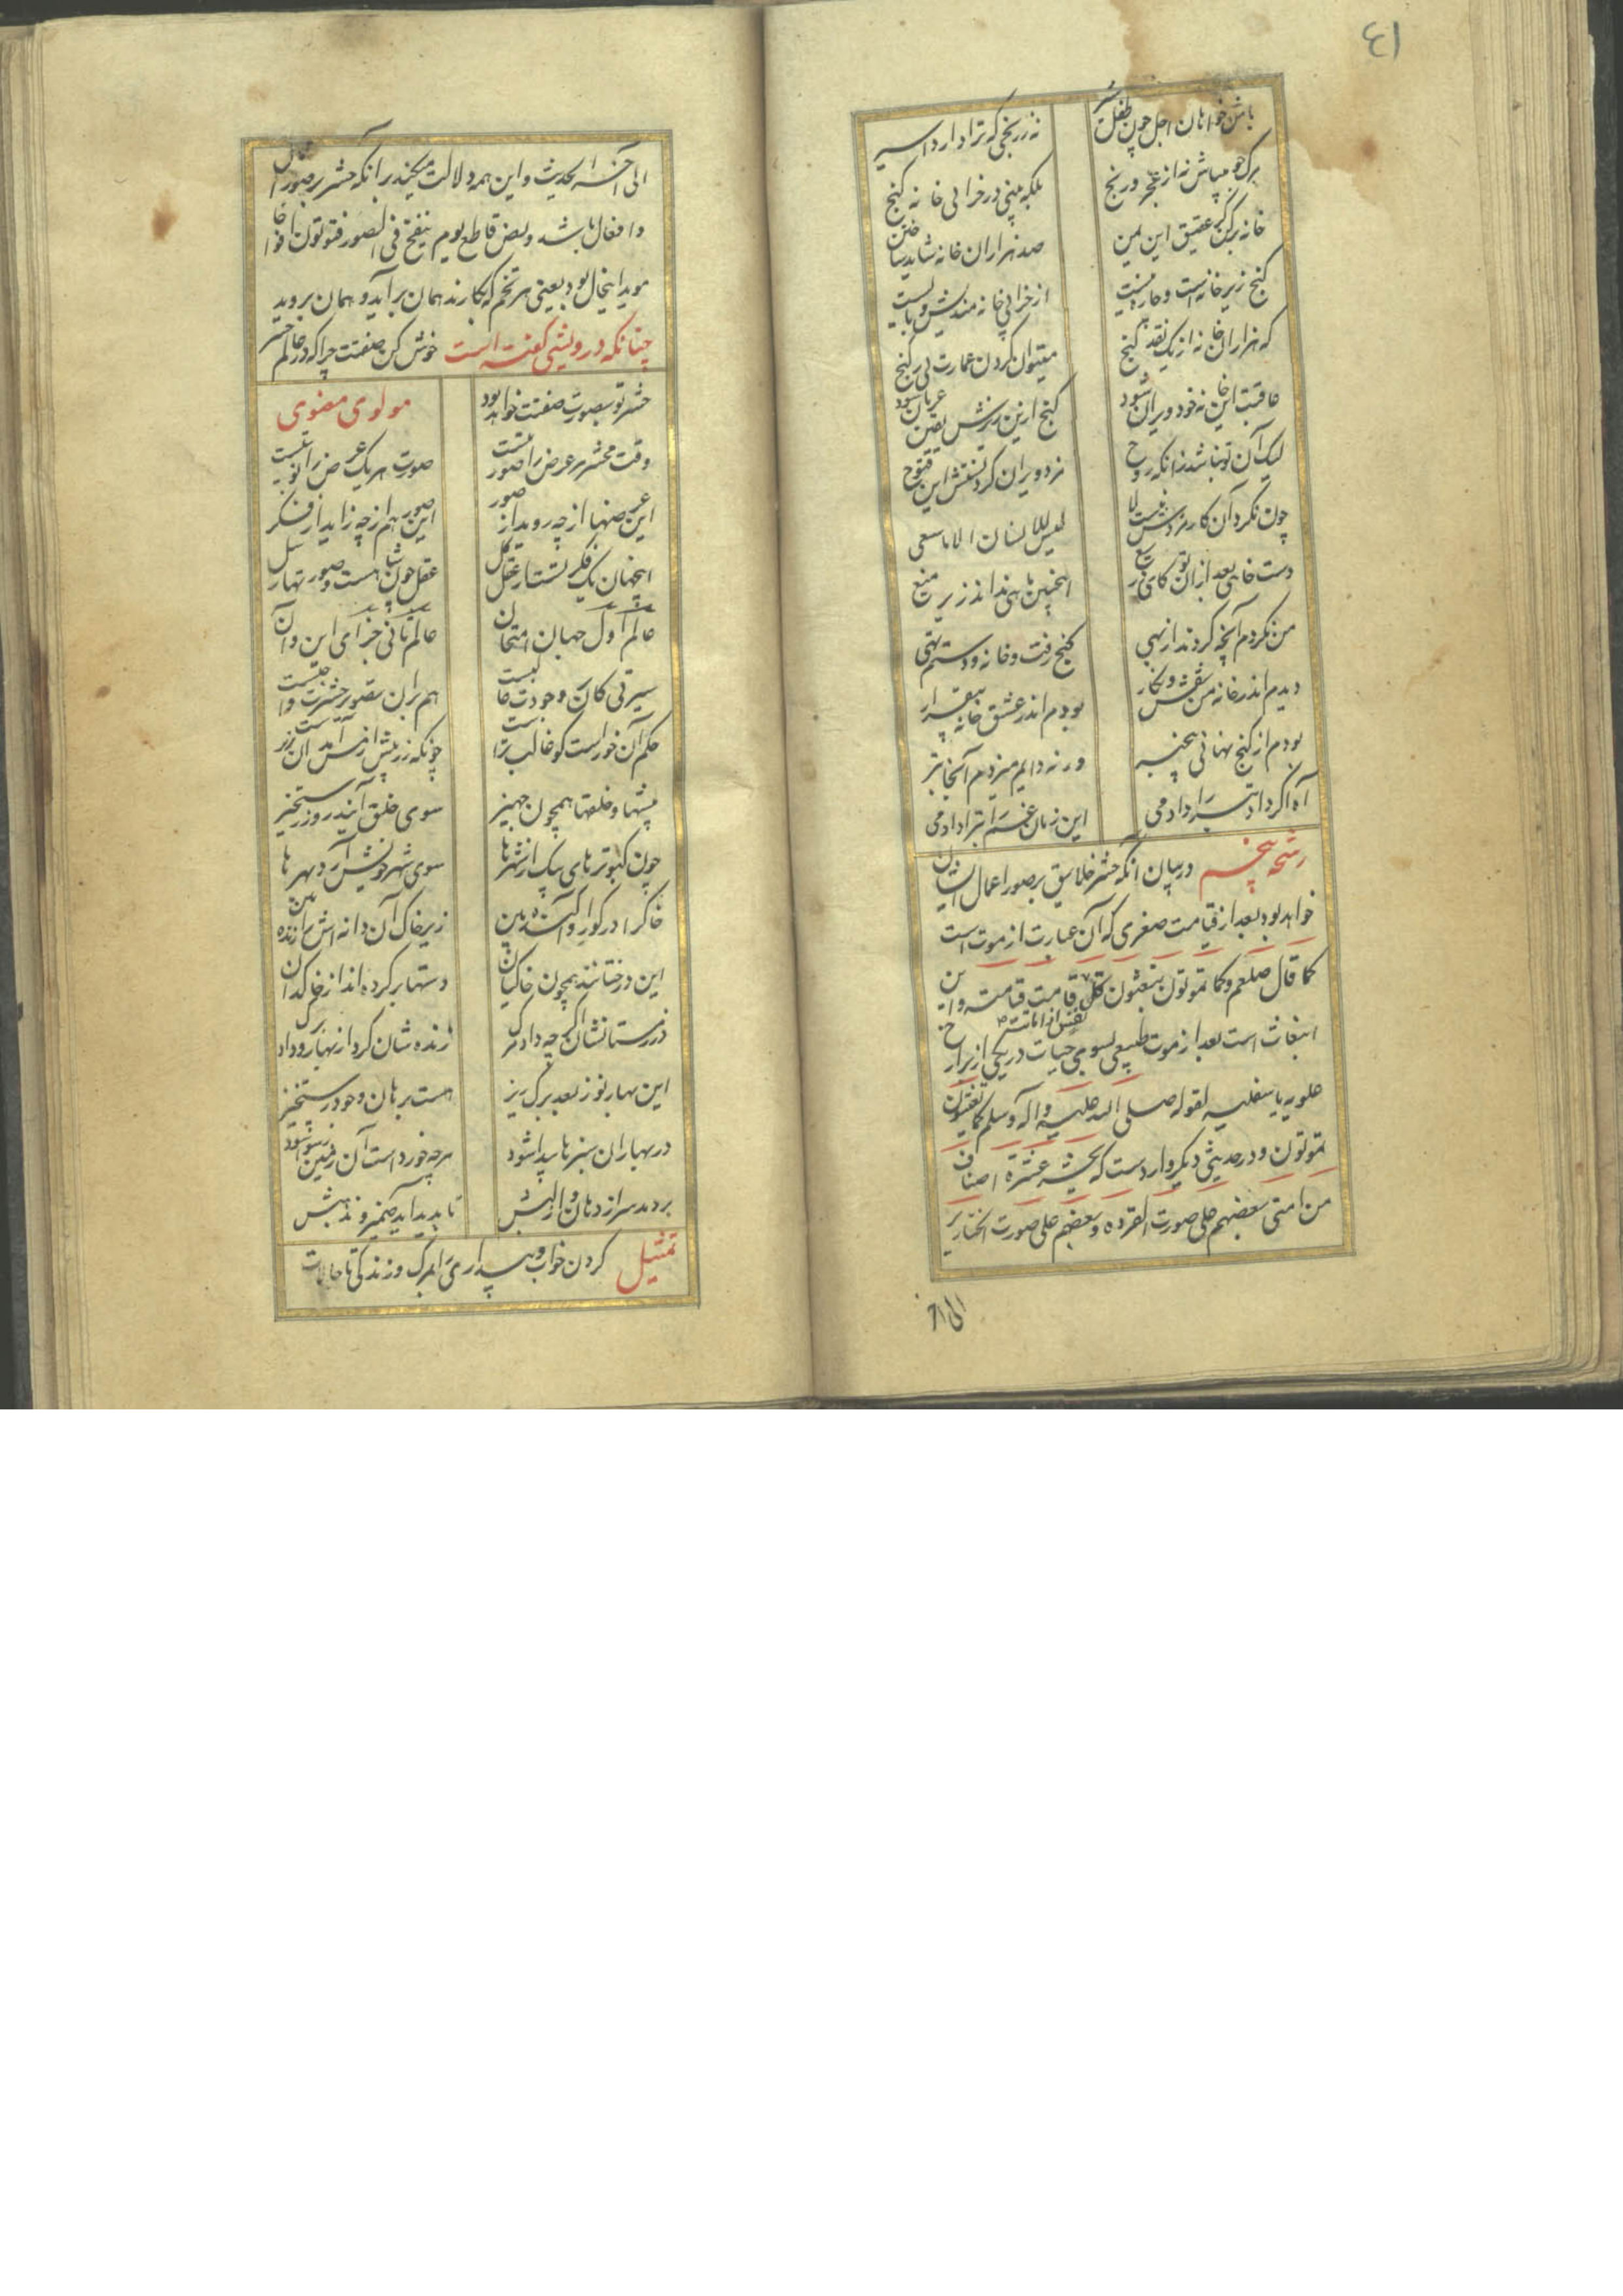 ٤١
باش خواهان اجل چون طفل شیر نه ز رنجی که ترا دارد اسیر
مرگ جو میباش نه از عجز و رنج بلکه بینی در خرابی خانه گنج
خانه برکن کز عقیق این یمن صد هزاران خانه شاید ساختن
گنج زیر خانه است و چاره نیست از خرابی خانه مندیش و مایست
که هزاران خانه از یک نقد گنج میتوان کردن عمارت بی ز رنج
عاقبت این خانه خود ویران شود گنج از زیرش یقین عریان شود
لیک آن تو نباشد زانکه روح مزد ویران کردنستش این فتوح
چون نکرد آن کار مزدش هست لا لیس للانسان الا ما سعی
دست خایی بعد ازان تو کای دریغ اینچنین ماهی بد اندر زیر میغ
من نکردم آنچه کردند از بهی گنج رفت و خانه و دستم تهی
دیدم اندر خانه من نقش و نگار بودم اندر عشق خانه بیقرار
بودم از گنج نهانی بیخبر ورنه دایم میزدم آنجا تبر
آه اگر داد تبر را دادمی این زمان غم را تبرا دادمی
رشحه پنجم در بیان آنکه حشر خلایق بر صور اعمال ایشان
خواهد بود بعد از قیامت صغری که آن عبارت از موت است
کما قال صلعم و کما تموتون تبعثون قامت قیامته و این
نفس اذا ماتت
انبعاث است بعد از موت طبیعی بسوی حیات در یکی از برازخ
علویه یا سفلیه لقوله صلی الله علیه و اله و سلم کما تعیشون
تموتون و در حدیثی دیگر وارد است که یحشر عشرة اصناف
من امتی بعضهم علی صورت القرده و بعضهم علی صورت الخنازیر
الی آخر
الی آخر الحدیث و این همه دلالت میکند بر آنکه حشر بر صور اعمال
و افعال باشد و نص قاطع یوم ینفخ فی الصور فتوتون افواجا
موید اینحال بود یعنی هر تخم که بکارند همان برآید و همان بروید
چنانکه درویشی گفته است خوش کن صفتت چرا که در عالم حشر
حشر تو بصورت صفتت خواهد بود مولوی معنوی
وقت محشر هر عرض را صورتیست صورت هر یک عرض را نوبتیست
این عرضها از چه روید از صور این صور هم از چه زاید از فکر
اینجهان یک فکرتست از عقل کل عقل چون شاهست و صورتها رسل
عالم اول جهان امتحان عالم ثانی جزای این و آن
سیرتی کان در وجودت غالبست هم بران تصویر حشرت واجبست
حکم آن خوراست کو غالبترست چونکه زر بیش از مس آمد آن زرست
پیشها و خلقها همچون جهیز سوی خلق آیند روز رستخیز
چون کبوترهای پیک از شهرها سوی شهر خویش آرد بهرها
خاک را در گور او آکنده بین زیر خاک آن دانه اش را زنده بین
این درختانند همچون خاکیان دستها بر کرده اند از خاکدان
در زمستانشان اگر چه داد مرگ زنده شان کرد از بهار و داد برگ
این بهار نو ز بعد برگ ریز هست برهان وجود رستخیز
در بهاران سرها پیدا شود هر چه خورد است آن زمین رسوا شود
بر دمد سر از دهان و از لبش تا پدید آید ضمیر و مذهبش
تمثیل کردن خواب و بیداری را بمرگ و زندگی تا حالات